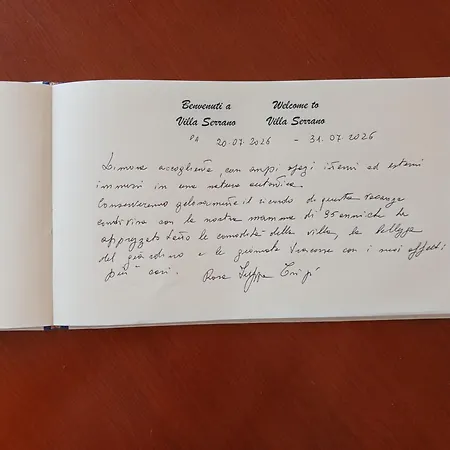 Benvenuti a Welcome to
Villa Serrano Villa Serrano
DA 20.07.2026 - 31.07.2026
Dimora accogliente, con ampi spazi interni ed esterni
immersi in una natura autentica.
Conserveremo gelosamente il ricordo di questa vacanza
condivisa con la nostra mamma di 95 anni che ha
apprezzato tanto le comodità della villa, la bellezza
del giardino e le giornate trascorse con i suoi affetti
più cari. Rosa